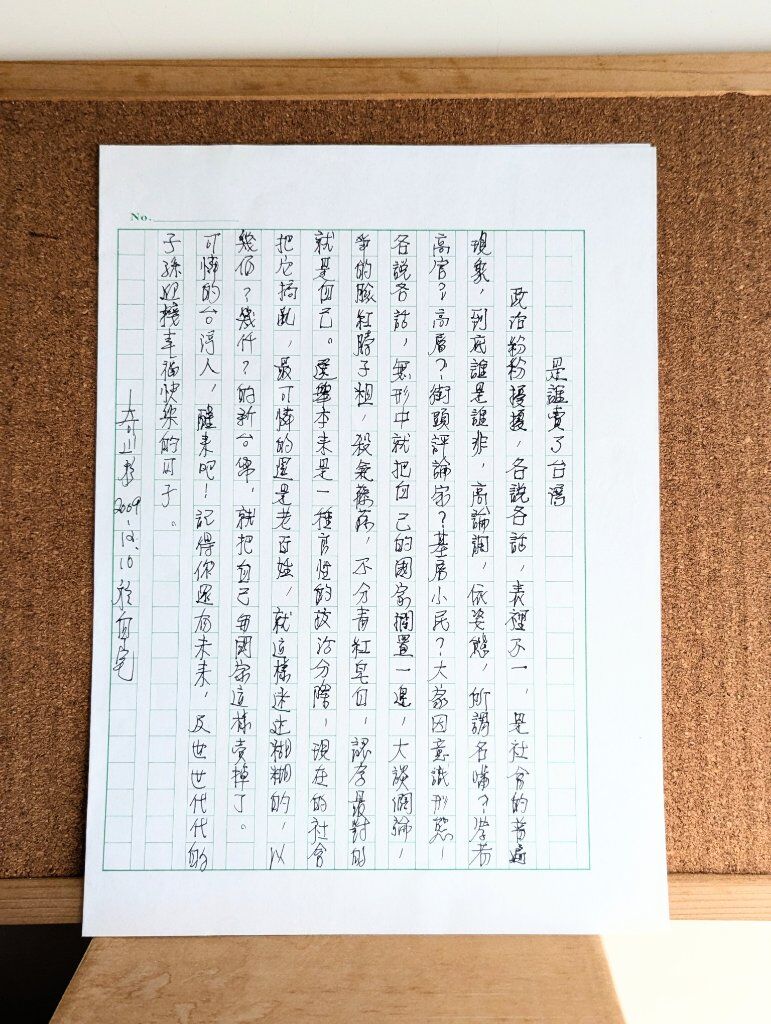 No.
是誰賣了台灣
政治紛紛擾擾，各說各話，表裡不一，是社會的普遍
現象，到底誰是誰非，高論調，依姿態，所謂名嘴？學者
高官？高層？街頭評論家？基層小民？大家因意識形態，
各說各話，無形中就把自己的國家擱置一邊，大談個論，
爭的臉紅脖子粗，殺氣騰騰，不分青紅皂白，認為最對的
就是自己。選舉本來是一種良性的政治分際，現在的社會
把它搞亂，最可憐的還是老百姓，就這樣迷迷糊糊的，以
幾佰？幾仟？的新台幣，就把自己與國家這樣賣掉了。
可憐的台灣人，醒來吧！記得你還有未來，及世世代代的
子孫迎接幸福快樂的日子。
2009.12.10於自宅